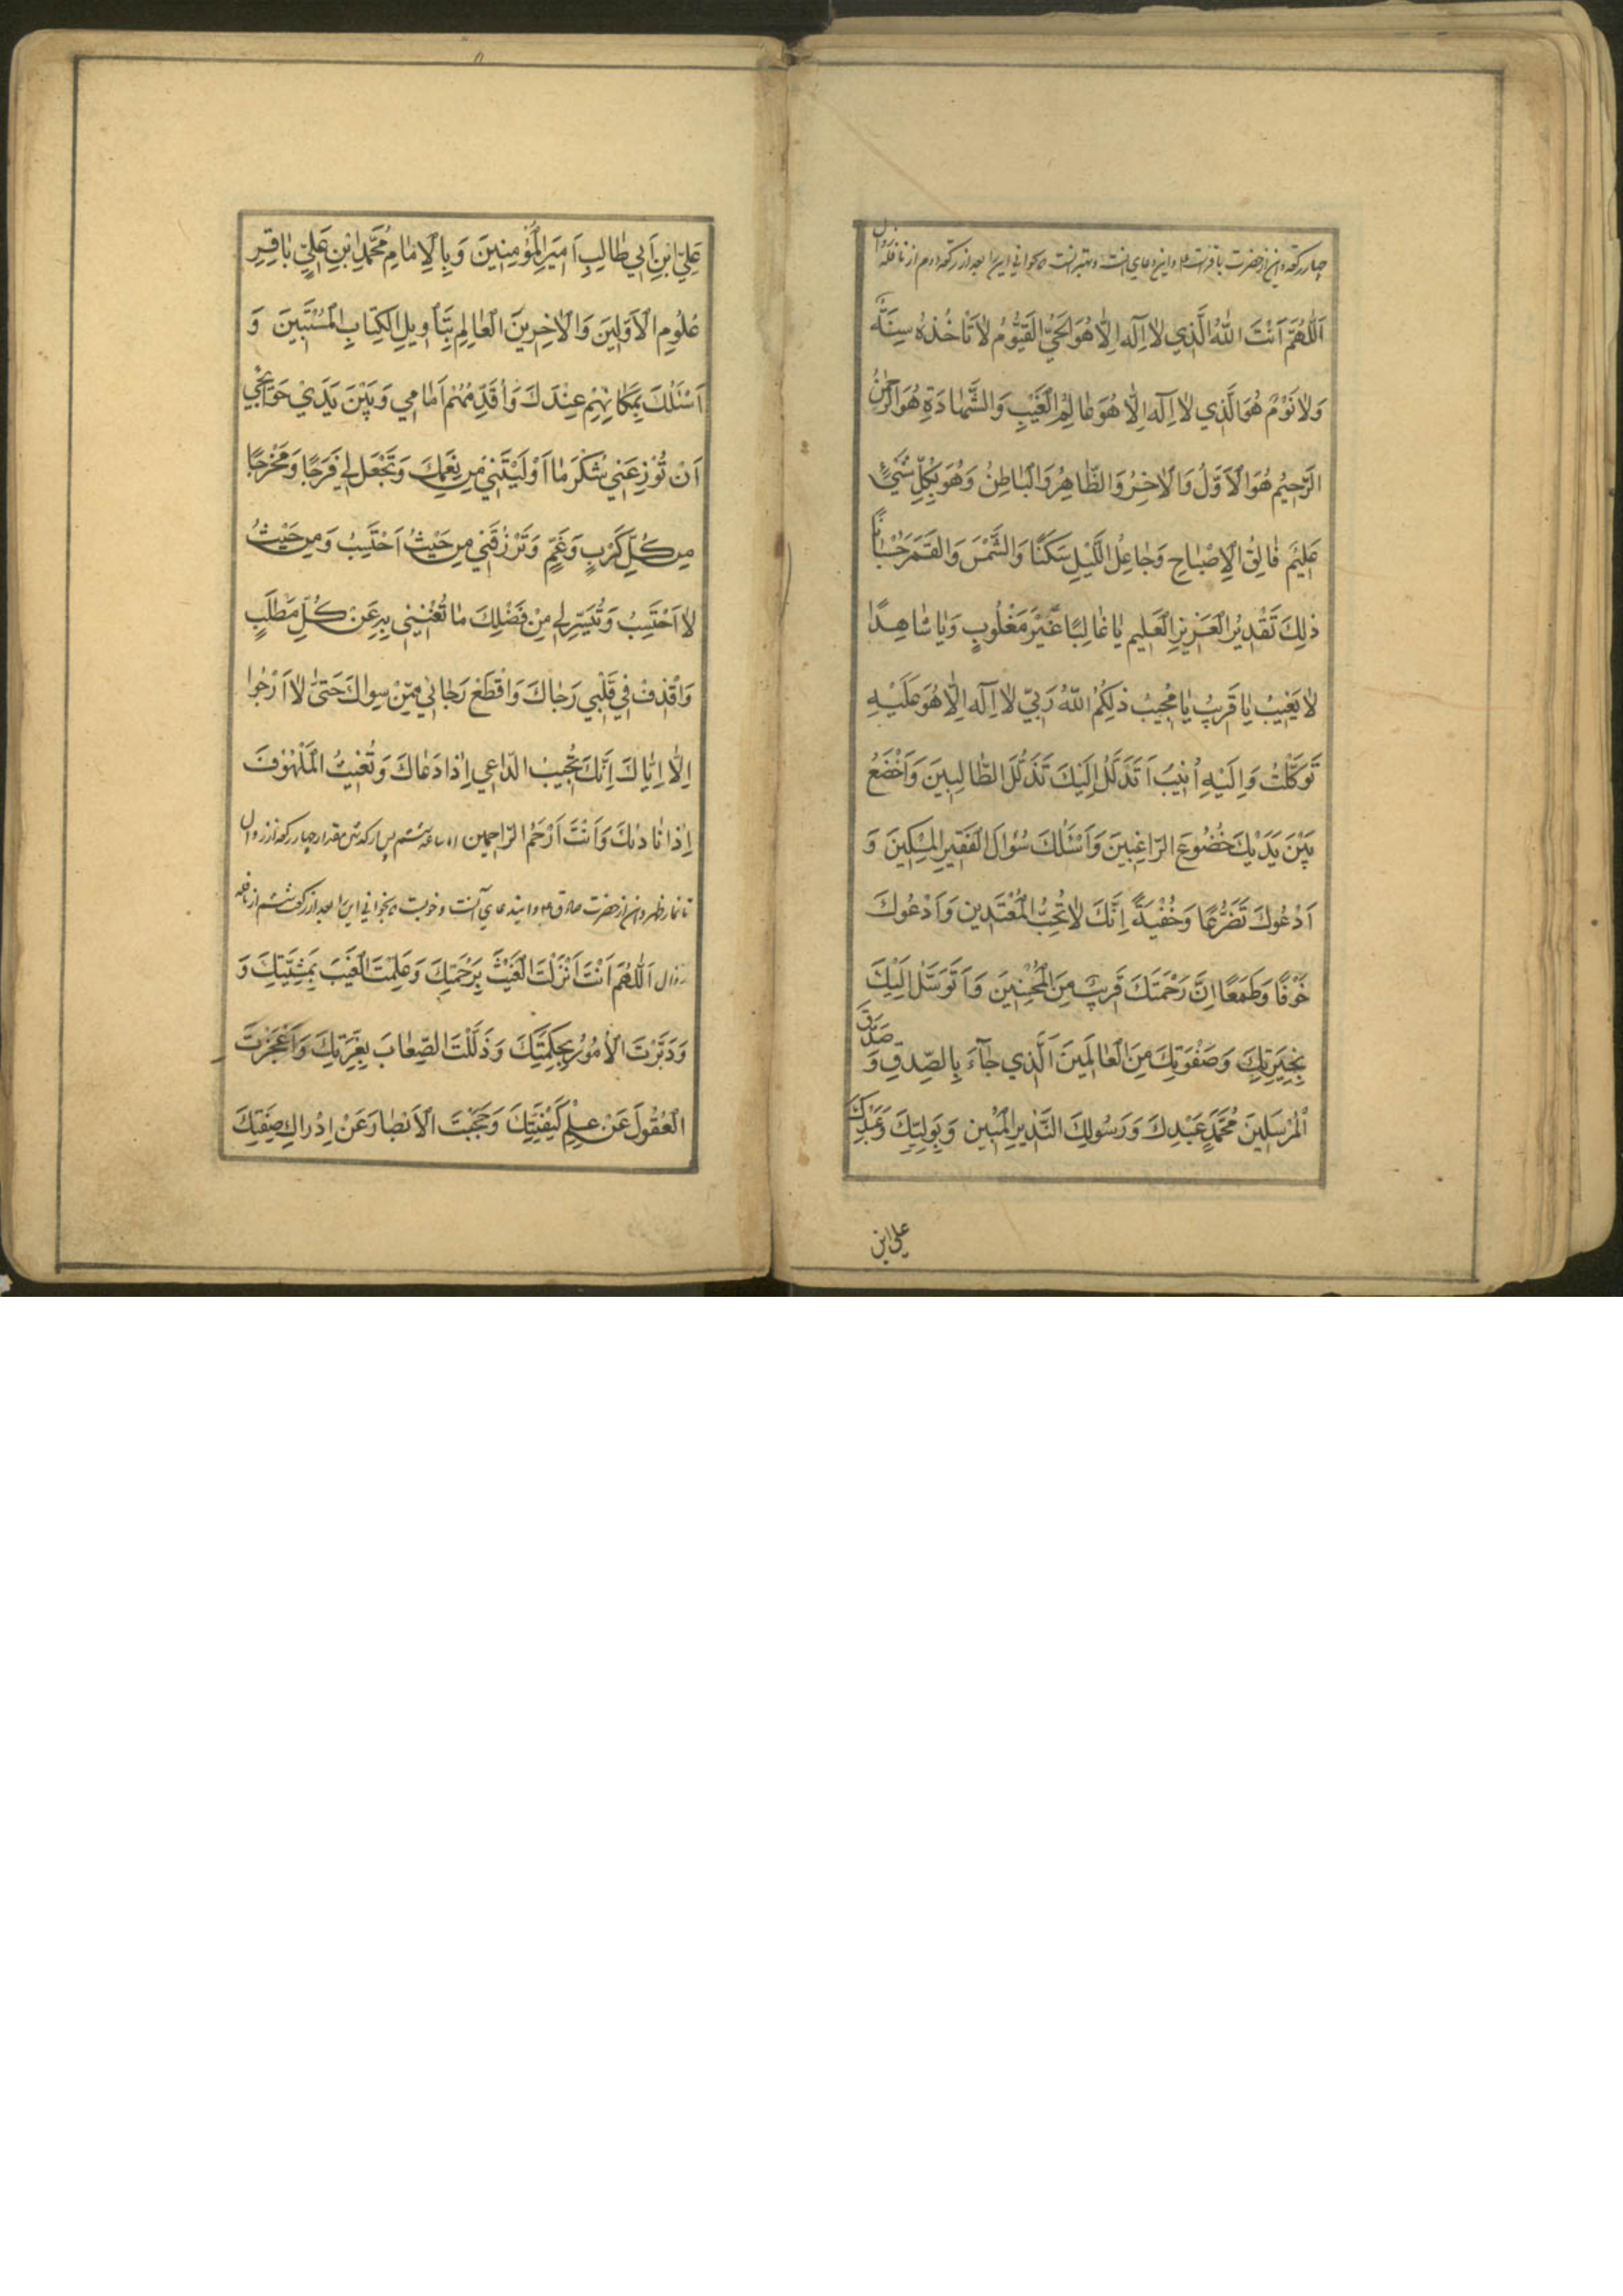 چهار رکعت و این از حضرت باقر است و این دعای آنست و بهتر است که بخوانی این را بعد از رکعت دوم از نافله زوال
اَللّٰهُمَّ اَنْتَ اللّٰهُ الَّذي لاٰ اِلٰهَ اِلّٰا هُوَ الْحَيُّ الْقَيُّومُ لاٰ تَاْخُذُهُ سِنَةٌ
وَلاٰ نَوْمٌ هُوَ الَّذي لاٰ اِلٰهَ اِلّٰا هُوَ عٰالِمُ الْغَيْبِ وَالشَّهٰادَةِ هُوَ الرَّحْمٰنُ
الرَّحيٖمُ هُوَ الْاَوَّلُ وَالْاٰخِرُ وَالظّٰاهِرُ وَالْبٰاطِنُ وَهُوَ بِكُلِّ شَيْءٍ
عَليٖمٌ فٰالِقُ الْاِصْبٰاحِ وَجٰاعِلُ اللَّيْلِ سَكَنًا وَالشَّمْسَ وَالْقَمَرَ حُسْبٰانًا
ذٰلِكَ تَقْديٖرُ الْعَزيٖزِ الْعَليٖمِ يٰا غٰالِبًا غَيْرَ مَغْلُوبٍ وَيٰا شٰاهِدًا
لاٰ يَغيٖبُ يٰا قَريٖبُ يٰا مُجيٖبُ ذٰلِكُمُ اللّٰهُ رَبّي لاٰ اِلٰهَ اِلّٰا هُوَ عَلَيْهِ
تَوَكَّلْتُ وَاِلَيْهِ اُنيٖبُ اَتَذَلَّلُ اِلَيْكَ تَذَلُّلَ الطّٰالِبيٖنَ وَاَخْضَعُ
بَيْنَ يَدَيْكَ خُضُوعَ الرّٰاغِبيٖنَ وَاَسْئَلُكَ سُؤٰالَ الْفَقيٖرِ الْمِسْكيٖنَ وَ
اَدْعُوكَ تَضَرُّعًا وَخُفْيَةً اِنَّكَ لاٰ تُحِبُّ الْمُعْتَديٖنَ وَاَدْعُوكَ
خَوْفًا وَطَمَعًا اِنَّ رَحْمَتَكَ قَريٖبٌ مِنَ الْمُحْسِنيٖنَ وَاَتَوَسَّلُ اِلَيْكَ
بِخِيَرَتِكَ وَصَفْوَتِكَ مِنَ الْعٰالَميٖنَ اَلَّذي جٰٓاءَ بِالصِّدْقِ وَ صَدَّقَ
الْمُرْسَليٖنَ مُحَمَّدٍ عَبْدِكَ وَرَسُولِكَ النَّذيٖرِ الْمُبيٖنِ وَبِوَلِيِّكَ وَعَبْدِكَ
علی ابن
عَلِيِّ ابْنِ اَبي طٰالِبٍ اَميٖرِ الْمُؤْمِنيٖنَ وَبِالْاِمٰامِ مُحَمَّدِ ابْنِ عَلِيٍّ بٰاقِرِ
عُلُومِ الْاَوَّليٖنَ وَالْاٰخِريٖنَ الْعٰالِمِ بِتَاْويٖلِ الْكِتٰابِ الْمُسْتَبيٖنَ وَ
اَسْئَلُكَ بِمَكٰانِهِمْ عِنْدَكَ وَاُقَدِّمُهُمْ اَمٰامي وَبَيْنَ يَدَيْ حَوٰائِجي
اَنْ تُوْزِعَني شُكْرَ مٰا اَوْلَيْتَني مِنْ نِعَمِكَ وَتَجْعَلَ لي فَرَجًا وَمَخْرَجًا
مِنْ كُلِّ كَرْبٍ وَغَمٍّ وَتَرْزُقَني مِنْ حَيْثُ اَحْتَسِبُ وَمِنْ حَيْثُ
لاٰ اَحْتَسِبُ وَتُيَسِّرَ لي مِنْ فَضْلِكَ مٰا تُغْنيٖني بِهِ عَنْ كُلِّ مَطْلَبٍ
وَاقْذِفْ في قَلْبي رَجٰاكَ وَاقْطَعْ رَجٰائي مِمَّنْ سِوٰاكَ حَتّٰى لاٰ اَرْجُوا
اِلّٰا اِيّٰاكَ اِنَّكَ تُجيٖبُ الدّٰاعي اِذٰا دَعٰاكَ وَتُغيٖثُ الْمَلْهُوفَ
اِذٰا نٰادٰاكَ وَاَنْتَ اَرْحَمُ الرّٰاحِميٖن ساعت ششم پس از گذشتن مقدار چهار رکعت از زوال
تا نماز ظهر و این از حضرت صادق و اینست دعای آنست و خوبست که بخوانی این را بعد از رکعت ششم از نافله
زوال اَللّٰهُمَّ اَنْتَ اَنْزَلْتَ الْغَيْثَ بِرَحْمَتِكَ وَعَلِمْتَ الْغَيْبَ بِمَشِيَّتِكَ وَ
وَدَبَّرْتَ الْاُمُورَ بِحِكْمَتِكَ وَذَلَّلْتَ الصِّعٰابَ بِعِزَّتِكَ وَاَعْجَزْتَ
الْعُقُولَ عَنْ عِلْمِ كَيْفِيَّتِكَ وَحَجَبْتَ الْاَبْصٰارَ عَنْ اِدْرٰاكِ صِفَتِكَ